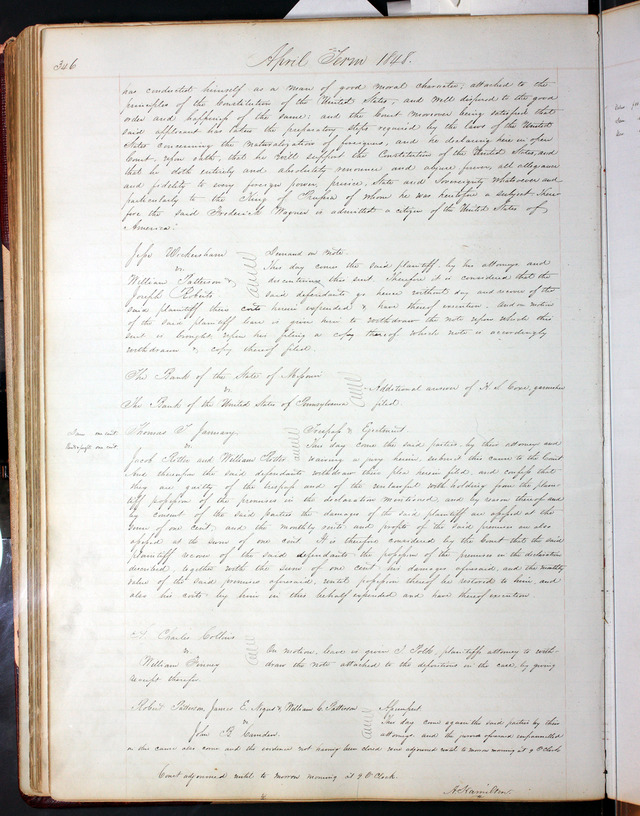 346
April Term 1848.
has conducted himself as a man of good moral character, attached to the
principles of the Constitution of the United States, and well disposed to the good
order and happiness of the same; and the Court moreover being satisfied that
said applicant has taken the preparatory steps required by the laws of the United
States concerning the naturalization of foreigners, and he declaring here in open
Court, upon oath, that he will support the Constitution of the United States, and
that he doth entirely and absolutely renounce and abjure forever all allegiance
and fidelity to every foreign power, prince, State and Sovereignty whatsoever and
particularly to the King of Prussia of whom he was heretofore a subject. There
fore the said Frederick Wagner is admitted a citizen of the United States of
America.
Jesse Wickersham
vs.
William Patterson &
Joseph Roberts
Demand on note
This day come the said plaintiff by his attorney and
discontinues this suit. Therefore it is considered that the
said defendants go hence without day and recover of the
said plaintiff their costs herein expended & have thereof execution. And on motion
of the said plaintiff leave is given him to withdraw the note upon which this
suit is brought upon his filing a copy thereof which note is accordingly
withdrawn & copy thereof filed.
The Bank of the State of Missouri
vs.
The Bank of the United States of Pennsylvania
Additional answer of H. S. Coxe, garnishee
filed.
Thomas T. January
vs.
Jacob and William
Trespass & Ejectment
This day come the said parties by their attorneys and
waiving a jury herein, submit this cause to the Court
And thereupon the said defendants withdraw their plea herein filed, and confess that
they are guilty of the trespass and of the unlawful with holding from the plain
tiff possession of the premises in the declaration mentioned, and by reason thereof and
by consent of the said parties the damages of the said plaintiff are assessed at the
sum of one cent, and the monthly rents and profits of the said premises are also
assessed at the sum of one cent. It is therefore considered by the Court that the said
plaintiff recover of the said defendants the possession of the premises in the declaration
described, together with the sum of one cent his damages aforesaid, and the monthly
value of the said premises aforesaid, until possession thereof be restored to him, and
also his costs by him in this behalf expended and have thereof execution
Charles Collins
vs.
William Finney
On motion, leave is given T. Polk, plaintiffs attorney to with-
draw the note attached to the depositions in the case, by giving
receipt therefor.
Robert Patterson, James E. & William C. Patterson
vs
John B. Camden
Assumpsit
This day come again the said parties by their
attorneys and the jurors aforesaid empannelled
in this cause also come and the evidence not being closed was adjourned until to morrow morning at 9 O'Clock
Court adjourned until to morrow morning at 9 O'Clock.
A Hamilton